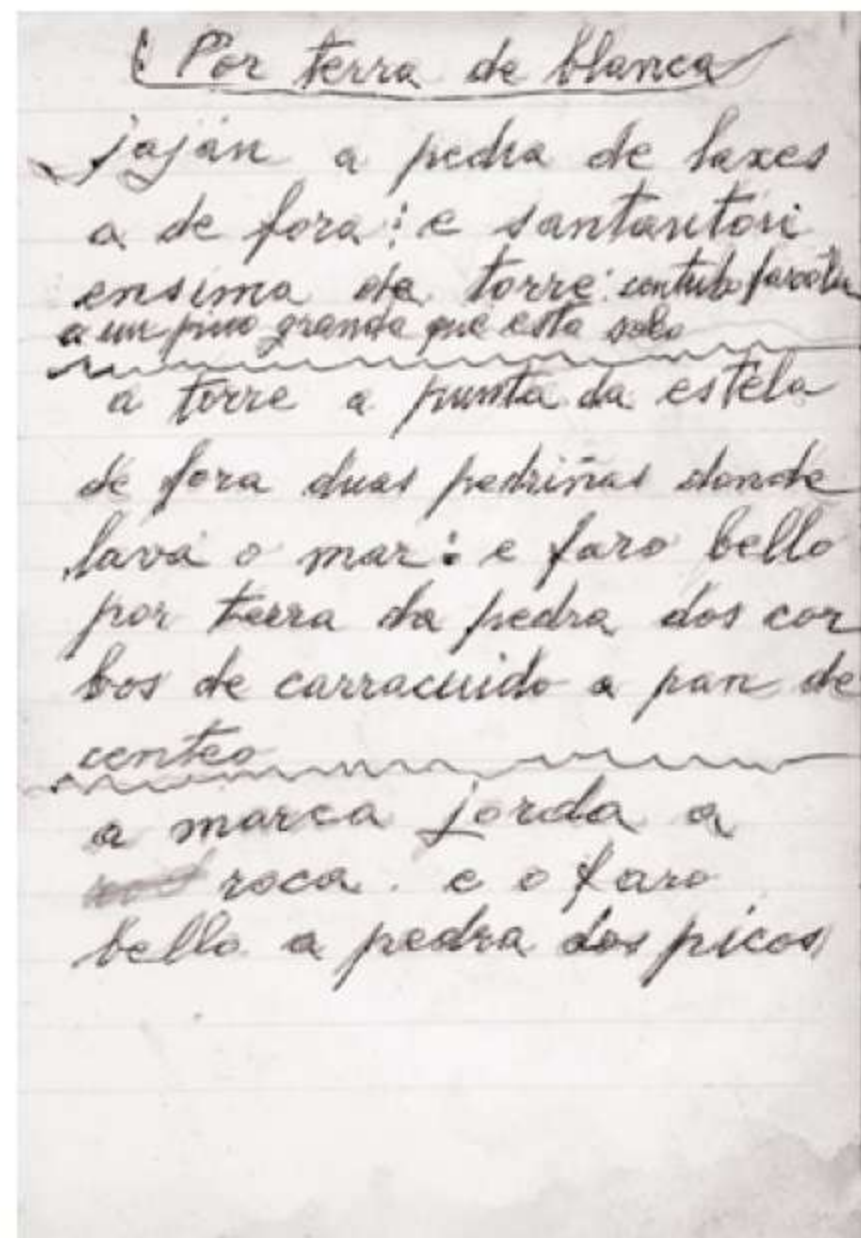 Por terra de blanca
jaján a pedra de laxes
a de fora: e santantori
ensima da torre:
a un pino grande que esta solo
a torre a punta da estela
de fora duas pedriñas donde
lava o mar: e faro bello
por terra da pedra dos cor
bos de carracuido a pan de
centeo
a marca jorda a
roca. e o faro
bello a pedra dos picos